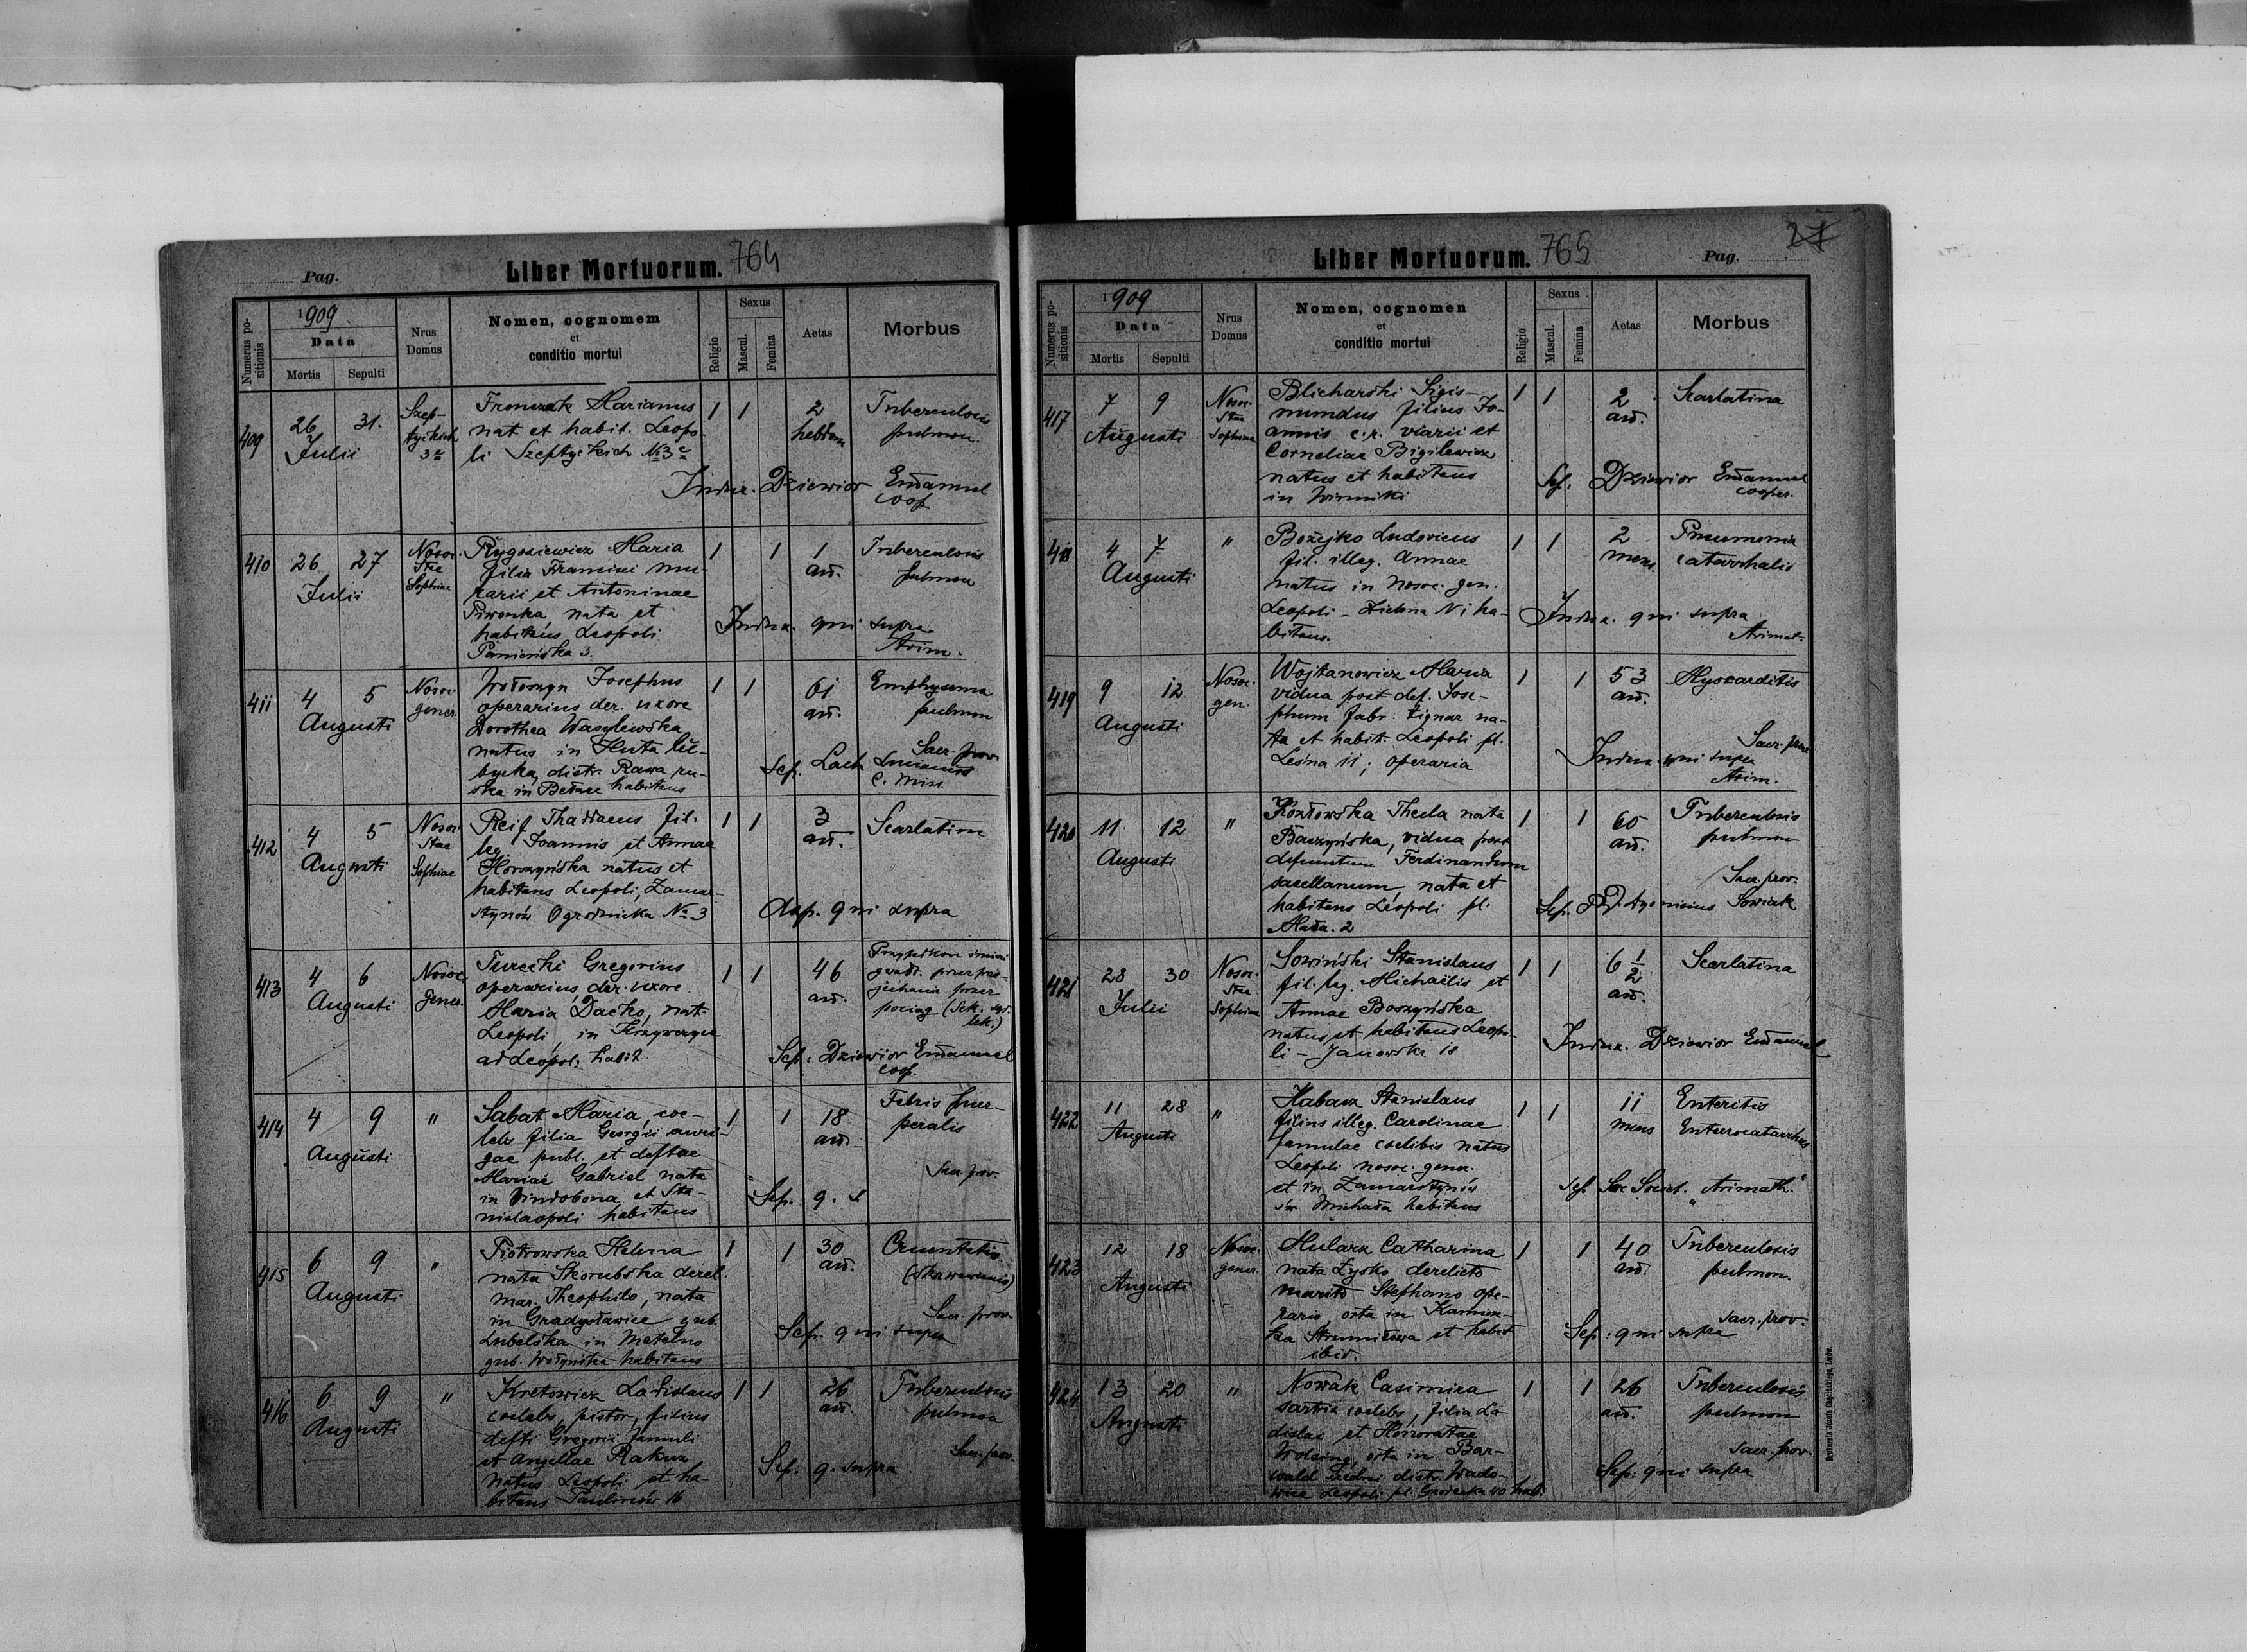 Pag.
Liber Mortuorum. 764
Numerus positionis
1909
Data
Mortis
Sepulti
Nrus Domus
Nomen, cognomem
et
conditio mortui
Religio
Sexus
Mascul.
Femina
Aetas
Morbus
409
26 31.
Julii
Szep-
tyckich
3c
Fronczak Marianus
nat et habit. Leopo-
li Szeptyckich № 3c
1 1
2
hebdom
Tuberculosis
pulmon.
Indux. Dziewior Emanuel
coop
410
26 27
Julii
Nosoc.
Stae
Sophiae
Rygosiewicz Maria
filia Francisci mu-
rarii et Antoninae
Piwonka, nata et
habitans Leopoli
Panieńska 3.
1 1
1
an.
Tuberculosis
pulmon
Indux. qui supra
Arim.
411
4 5
Augusti
Nosoc.
gener
Wołoszyn Josephus
operarius der. uxore
Dorothea Wasylewska
natus in Huta lu-
bycka, distr. Rawa ru-
ska in Bełzec habitans
1 1
61
an.
Emphysema
pulmon
Sacr. prov.
Sep. Lach Lucianus
C. Miss.
412
4 5
Augusti
Nosoc.
Stae
Sophiae
Reif Thaddaeus fil.
leg. Joannis et Annae
Horszyńska natus et
habitans Leopoli, Zamar-
stynów Ogrodnicka № 3
1 1
3
an.
Scarlatina
Dep. qui supra
413
4 6
Augusti
Nosoc.
Gener.
Turecki Gregorius
operarius, der. uxore
Maria Dacko, nat.
Leopoli, in Krzywczyce
ad Leopol. habit.
1 1
46
an.
przez prze-
jechanie przez
pociąg
lek.)
Sep. Dziewior Emanuel
coop.
414
4 9
Augusti
"
Sabat Maria, coe-
lebs filia Georgii auri-
gae publ. et deftae
Mariae Gabriel nata
in Vindobona et Sta-
nislaopoli habitans
1 1
18
an.
Febris puer-
peralis
Sacr. prov.
Sep. q. s
415
6 9
Augusti
"
Piotrowska Helena
nata Skorubska derel.
mar. Theophilo, nata
in Gradysławice gub.
Lubelska in
gub. Wołyńska habitans
1 1
30
an.
Cruentatio
(skrwawienie)
Sacr. prov.
Sep. qui supra
416
6 9
Augusti
"
Kretowicz Ladislaus
coelebs, pistor, filius
defti Gregorii famuli
et Angellae Rakusz
natus Leopoli et ha-
bitans Paulinów 16
1 1
26
an.
Tuberculosis
pulmon
Sacr. prov.
Sep. q. supra
27
Liber Mortuorum. 765
Pag.
Numerus positionis
1909
Data
Mortis
Sepulti
Nrus Domus
Nomen, cognomen
et
conditio mortui
Religio
Sexus
Mascul.
Femina
Aetas
Morbus
417
7 9
Augusti
Nosoc.
Stae
Sophiae
Blicharski Sigis-
mundus filius Jo-
annis c. r. viarii et
Corneliae Bigilewicz
natus et habitans
in Winniki
1 1
2
an.
Scarlatina
Sep. Dziewior Emanuel
cooper.
418
4 7
Augusti
"
Bożejko Ludovicus
fil. illeg. Annae
natus in nosoc. gen.
Leopoli - Zielona N ha-
bitans.
1 1
2
mens.
Pneumonia
catarrhalis
Indux. qui supra
Arimat.
419
9 12
Augusti
Nosoc.
gen.
Wojtanowicz Maria
vidua post def. Jose-
phum fabr. lignar na-
ta et habit. Leopoli pl.
Leśna 11; operaria
1 1
53
an.
Myocarditis
Sacr. prov
Indux. qui supra
Arim.
420
11 12
Augusti
"
Kozłowska Thecla nata
Baczyńska, vidua post
defunctum Ferdinandum
sacellanum, nata et
habitans Leopoli pl.
Mała. 2
1 1
60
an.
Tuberculosis
pulmon
Sacr. prov.
Sowiak
421
28 30
Julii
Nosoc.
Stae
Sophiae
Sowiński Stanislaus
fil. leg. Michaelis et
Annae Boszyńska
natus et habitans Leopo-
li - Janowska 18
1 1
6 1/2
an.
Scarlatina
Indux. Dziewior Emanuel
422
11 28
Augusti
"
Habasz Stanislaus
filius illeg. Carolinae
famulae coelibis natus
Leopoli nosoc. gener.
et in Zamarstynów
św. Michała habitans
1 1
11
mens
Enteritis
Enterocatarrhus
Sep. Soc Societ. "Arimath."
423
12 18
Augusti
Nosoc.
gener.
Hularz Catharina
nata Łysko derelicto
marito Stephano ope-
rario, orta in Kamion-
ka Strumiłowa et habit
ibid.
1 1
40
an.
Tuberculosis
pulmon.
Sacr. prov.
Sep. qui supra
424
13 20
Augusti
"
Nowak Casimira
sartrix coelebs, filia La-
dislai et Honoratae
orta in Bar-
wałd średni distr. Wado-
wice Leopoli pl. Grodecka 40 hab.
1 1
26
an.
Tuberculosis
pulmon
Sacr. prov.
Sep. qui supra